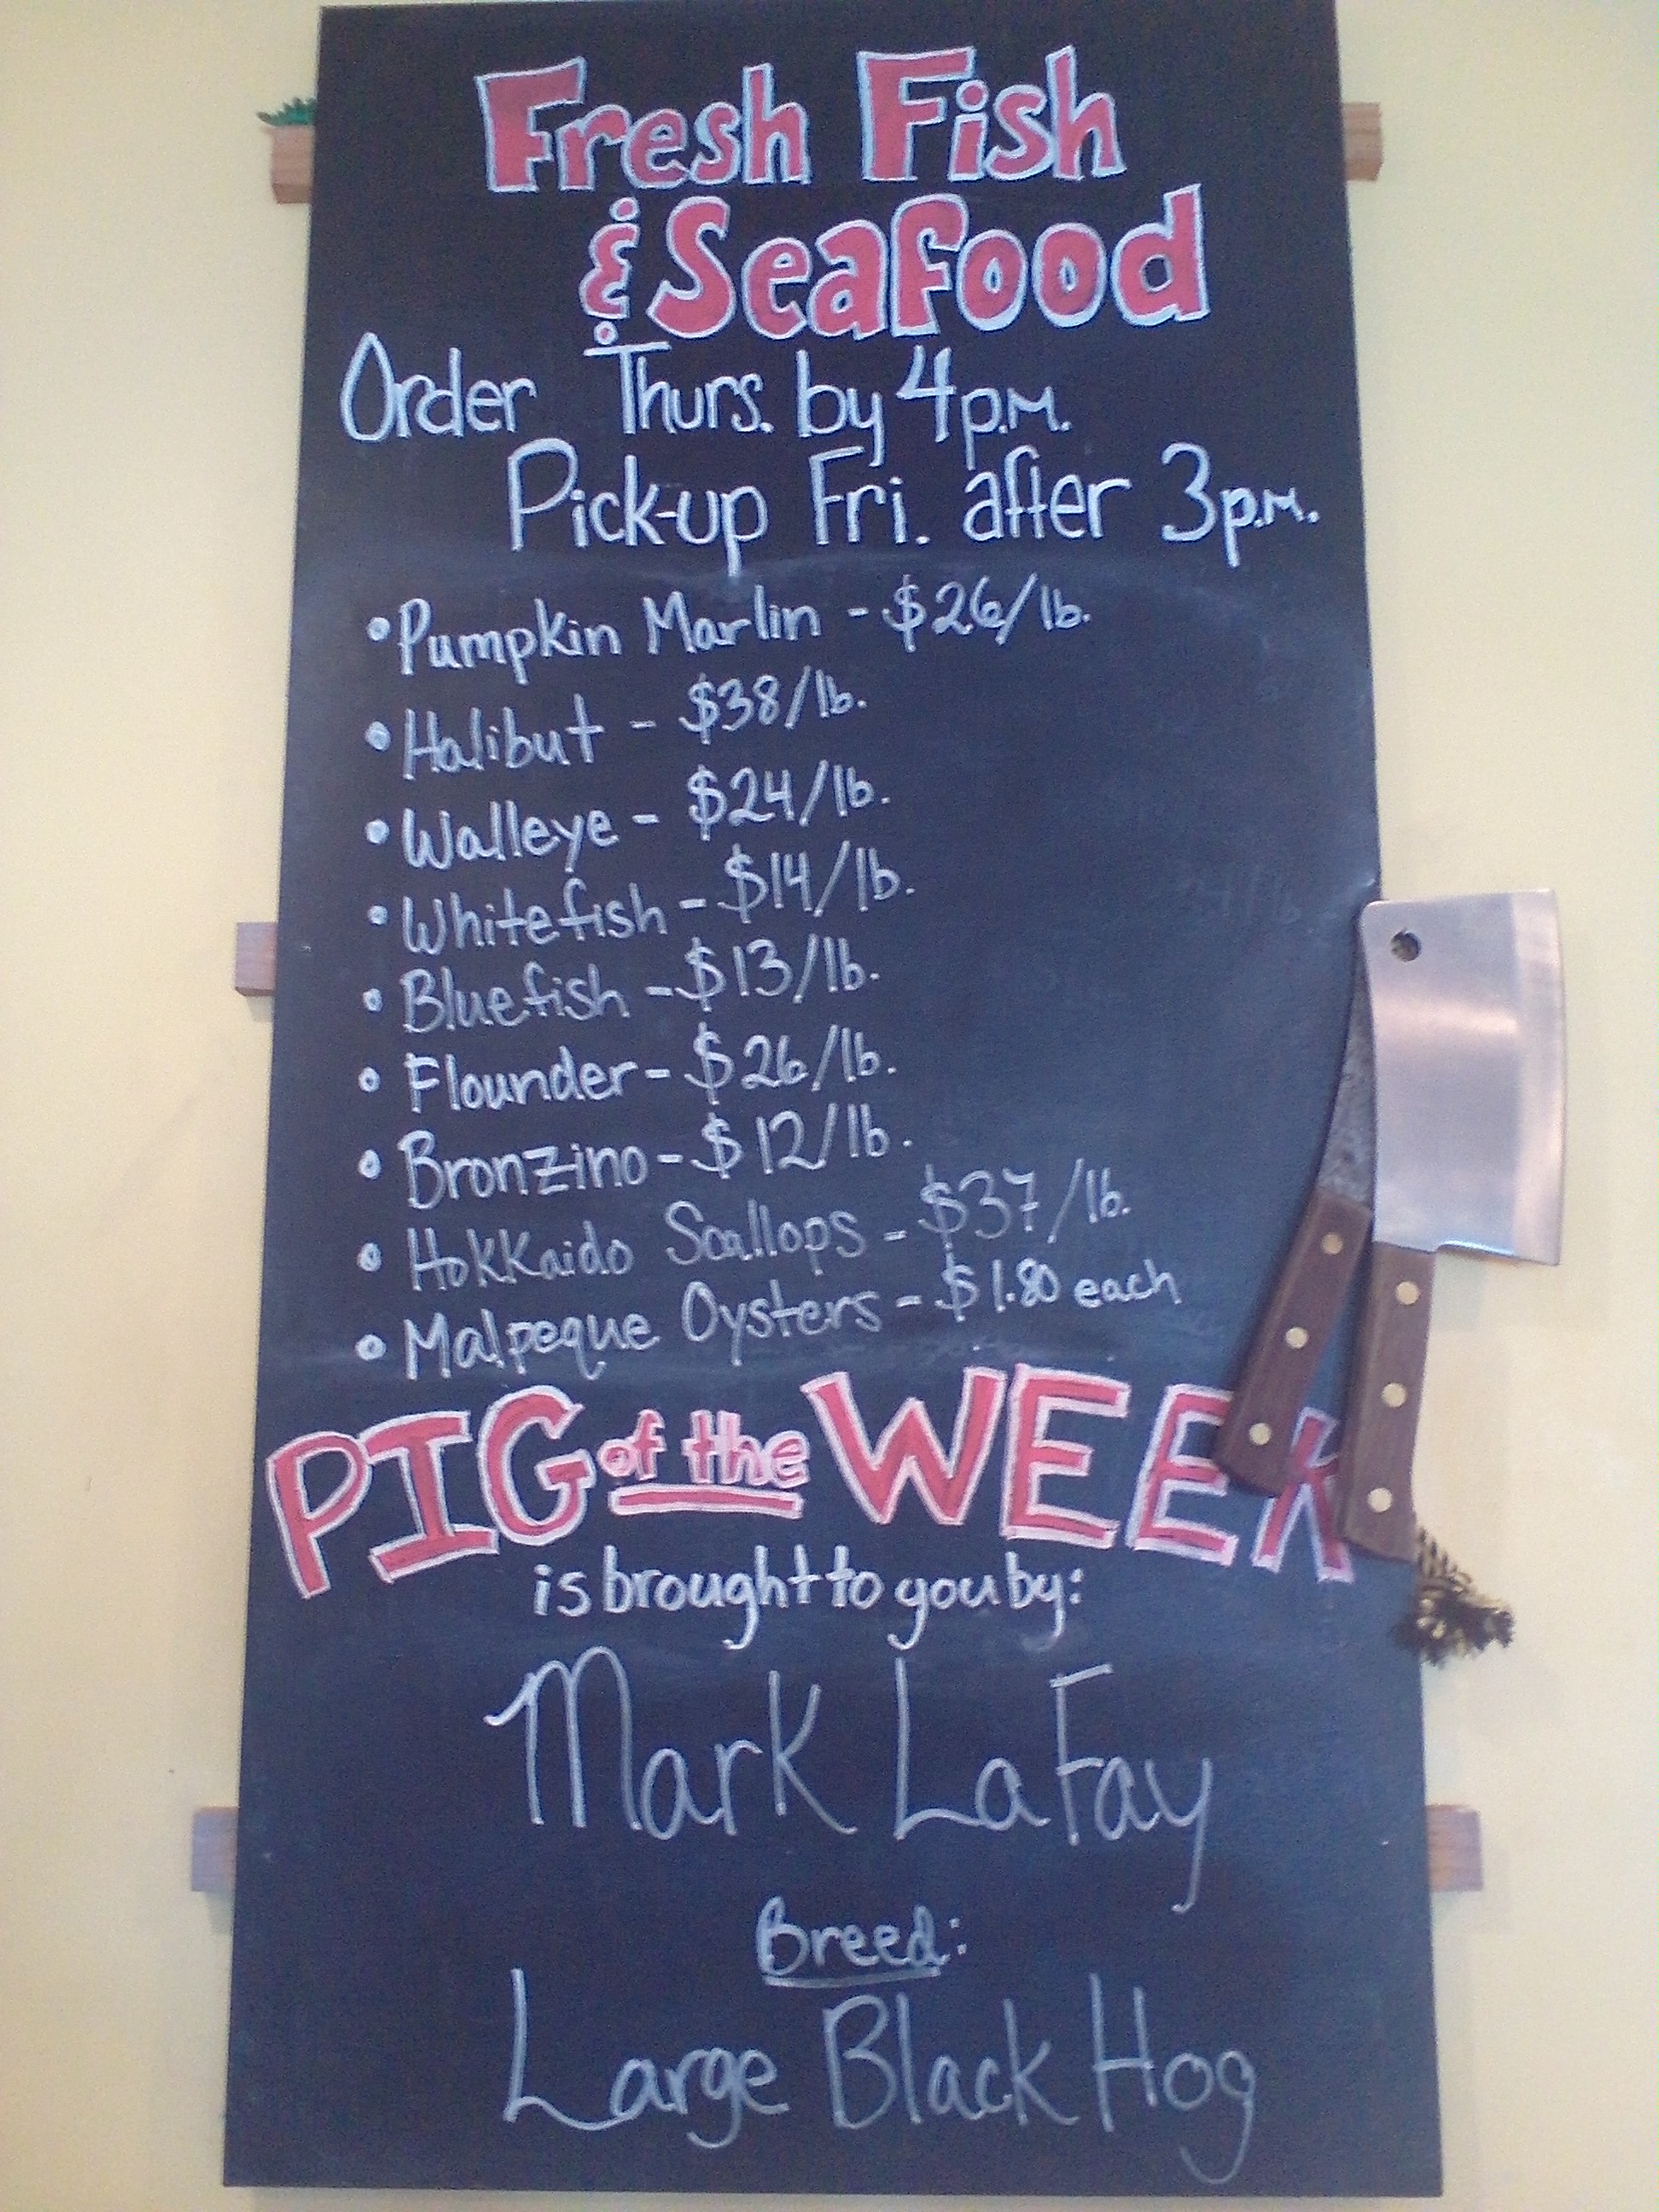 Fresh Fish
& Seafood
Order Thurs. by 4p.m.
Pick-up Fri. after 3p.m.
• Pumpkin Marlin - $26/lb.
• Halibut - $38/lb.
• Walleye - $24/lb.
• Whitefish - $14/lb.
• Bluefish - $13/lb.
• Flounder - $26/lb.
• Bronzino - $12/lb.
• Hokkaido Scallops - $37/lb.
• Malpeque Oysters - $1.80 each
PIG of the WEEK
is brought to you by:
Mark LaFay
Breed:
Large Black Hog